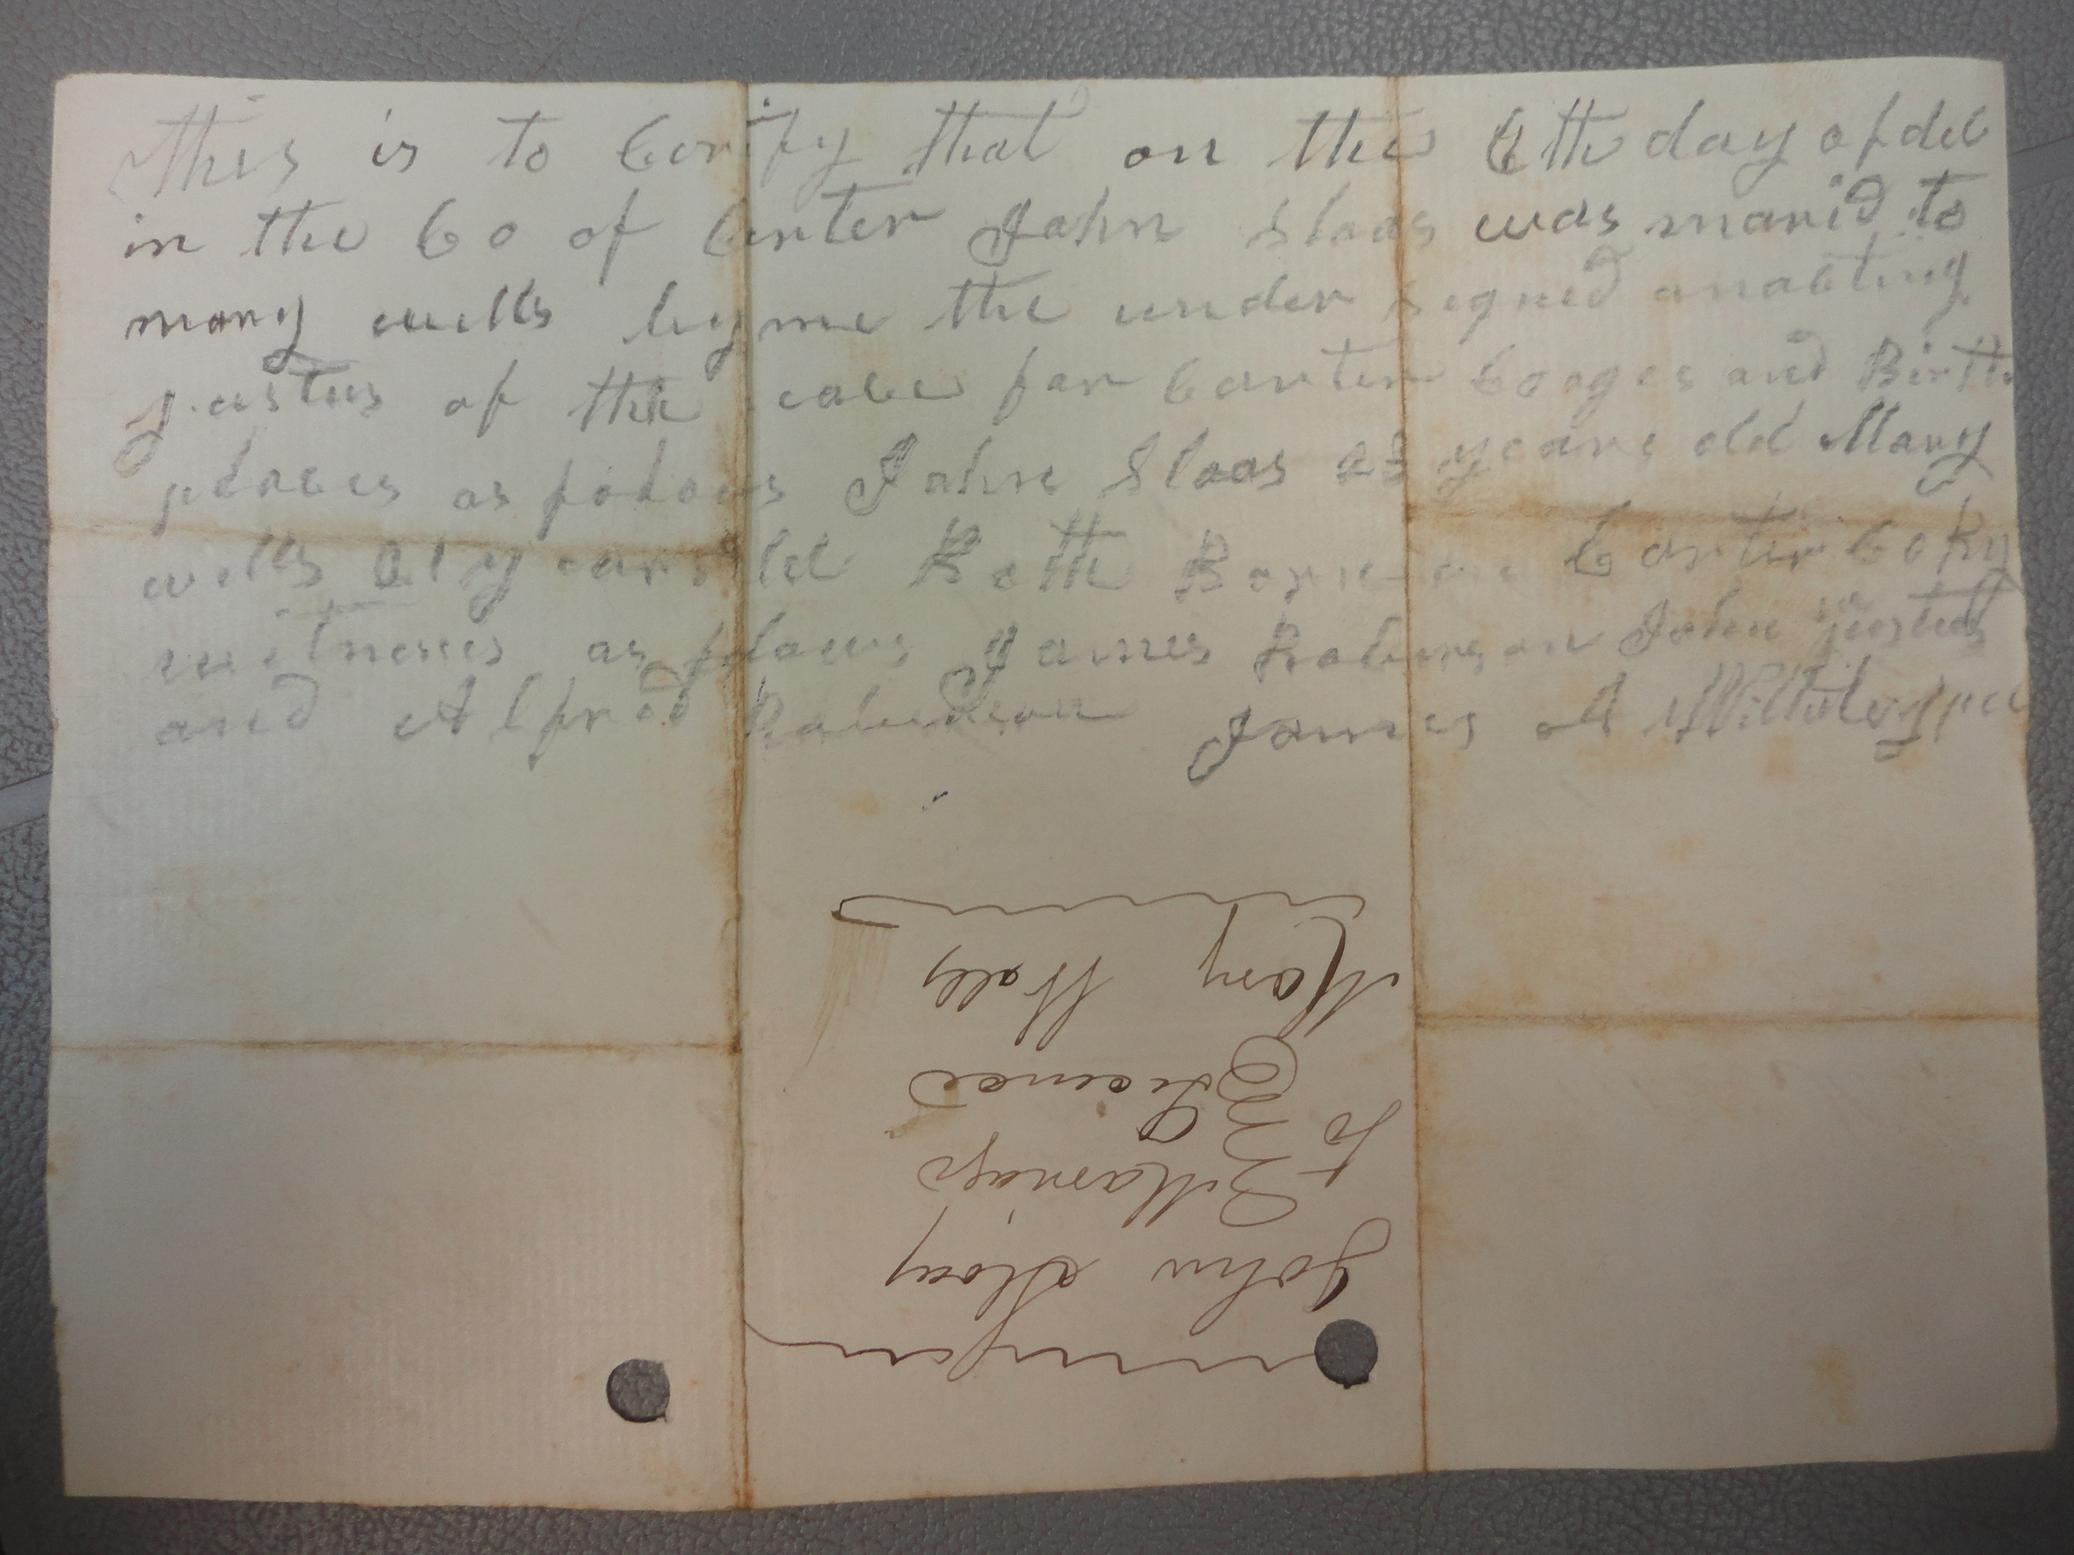 this is to Cerify that on the 6th day of dec
in the Co of Carter John Sloas was marid to
mary wells by me the under signed anacting
justus of the cace for Carter Co ages and Birth
places as folows John Sloas 23 years old Mary
wells 21 years old Both Borne in Carter Co Ky
witneses as folows James Robinson John justus
and Alfred Robinson James A
John Sloas
To } Marriage License
Mary Wells